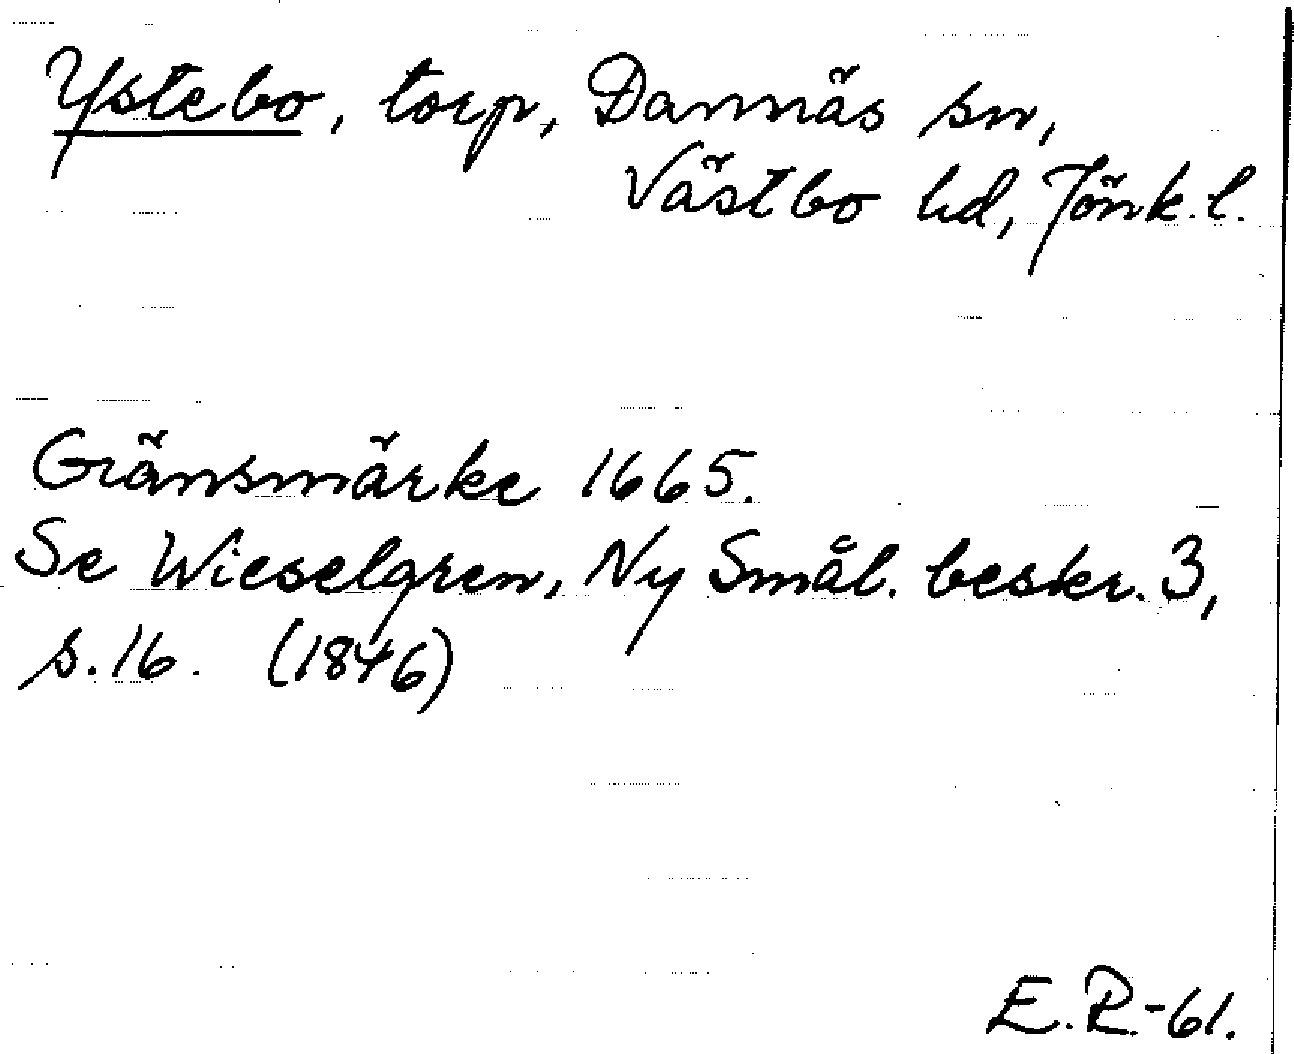 Ystebo, torp, Dannäs sn,
Västbo hd, Jönk.l.
Gränsmärke 1665.
Se Wieselgren, Ny Smål. beskr. 3,
s. 16. (1846)
E.R.-61.